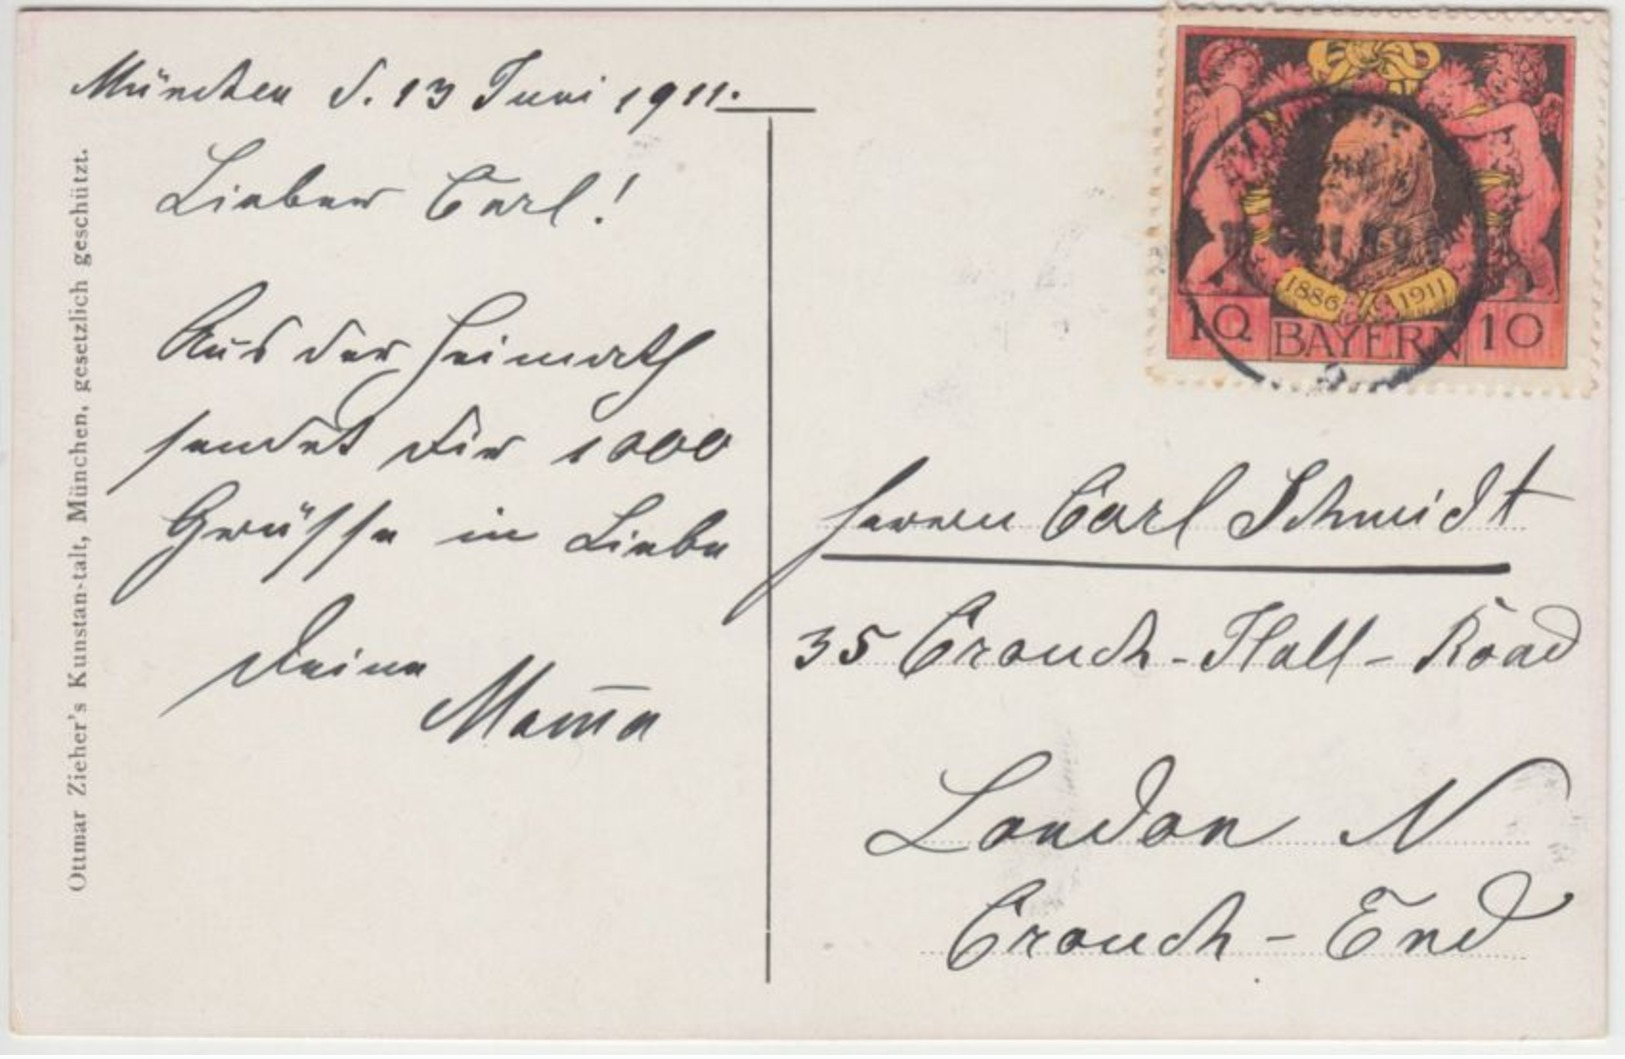 München d. 13 Juni 1911.
Lieber Carl!
Aus der Heimath
sendet Dir 1000
Grüsse in Liebe
Deine
Mam̅a
Ottmar Zieher's Kunstan-talt, München, gesetzlich geschützt.
1886 1911
10 BAYERN 10
Herrn Carl Schmidt
35 Crouch-Hall-Road
London N
Crouch-End